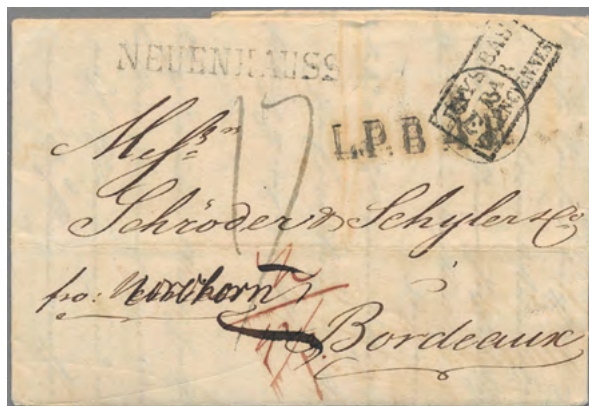 NEUENHAUSS
PAYS-BAS
PAR
VALENCIENNES
L.P.B
17
Messrs
Schröder & Schyler & Co
fro: Nordhorn
à
Bordeaux